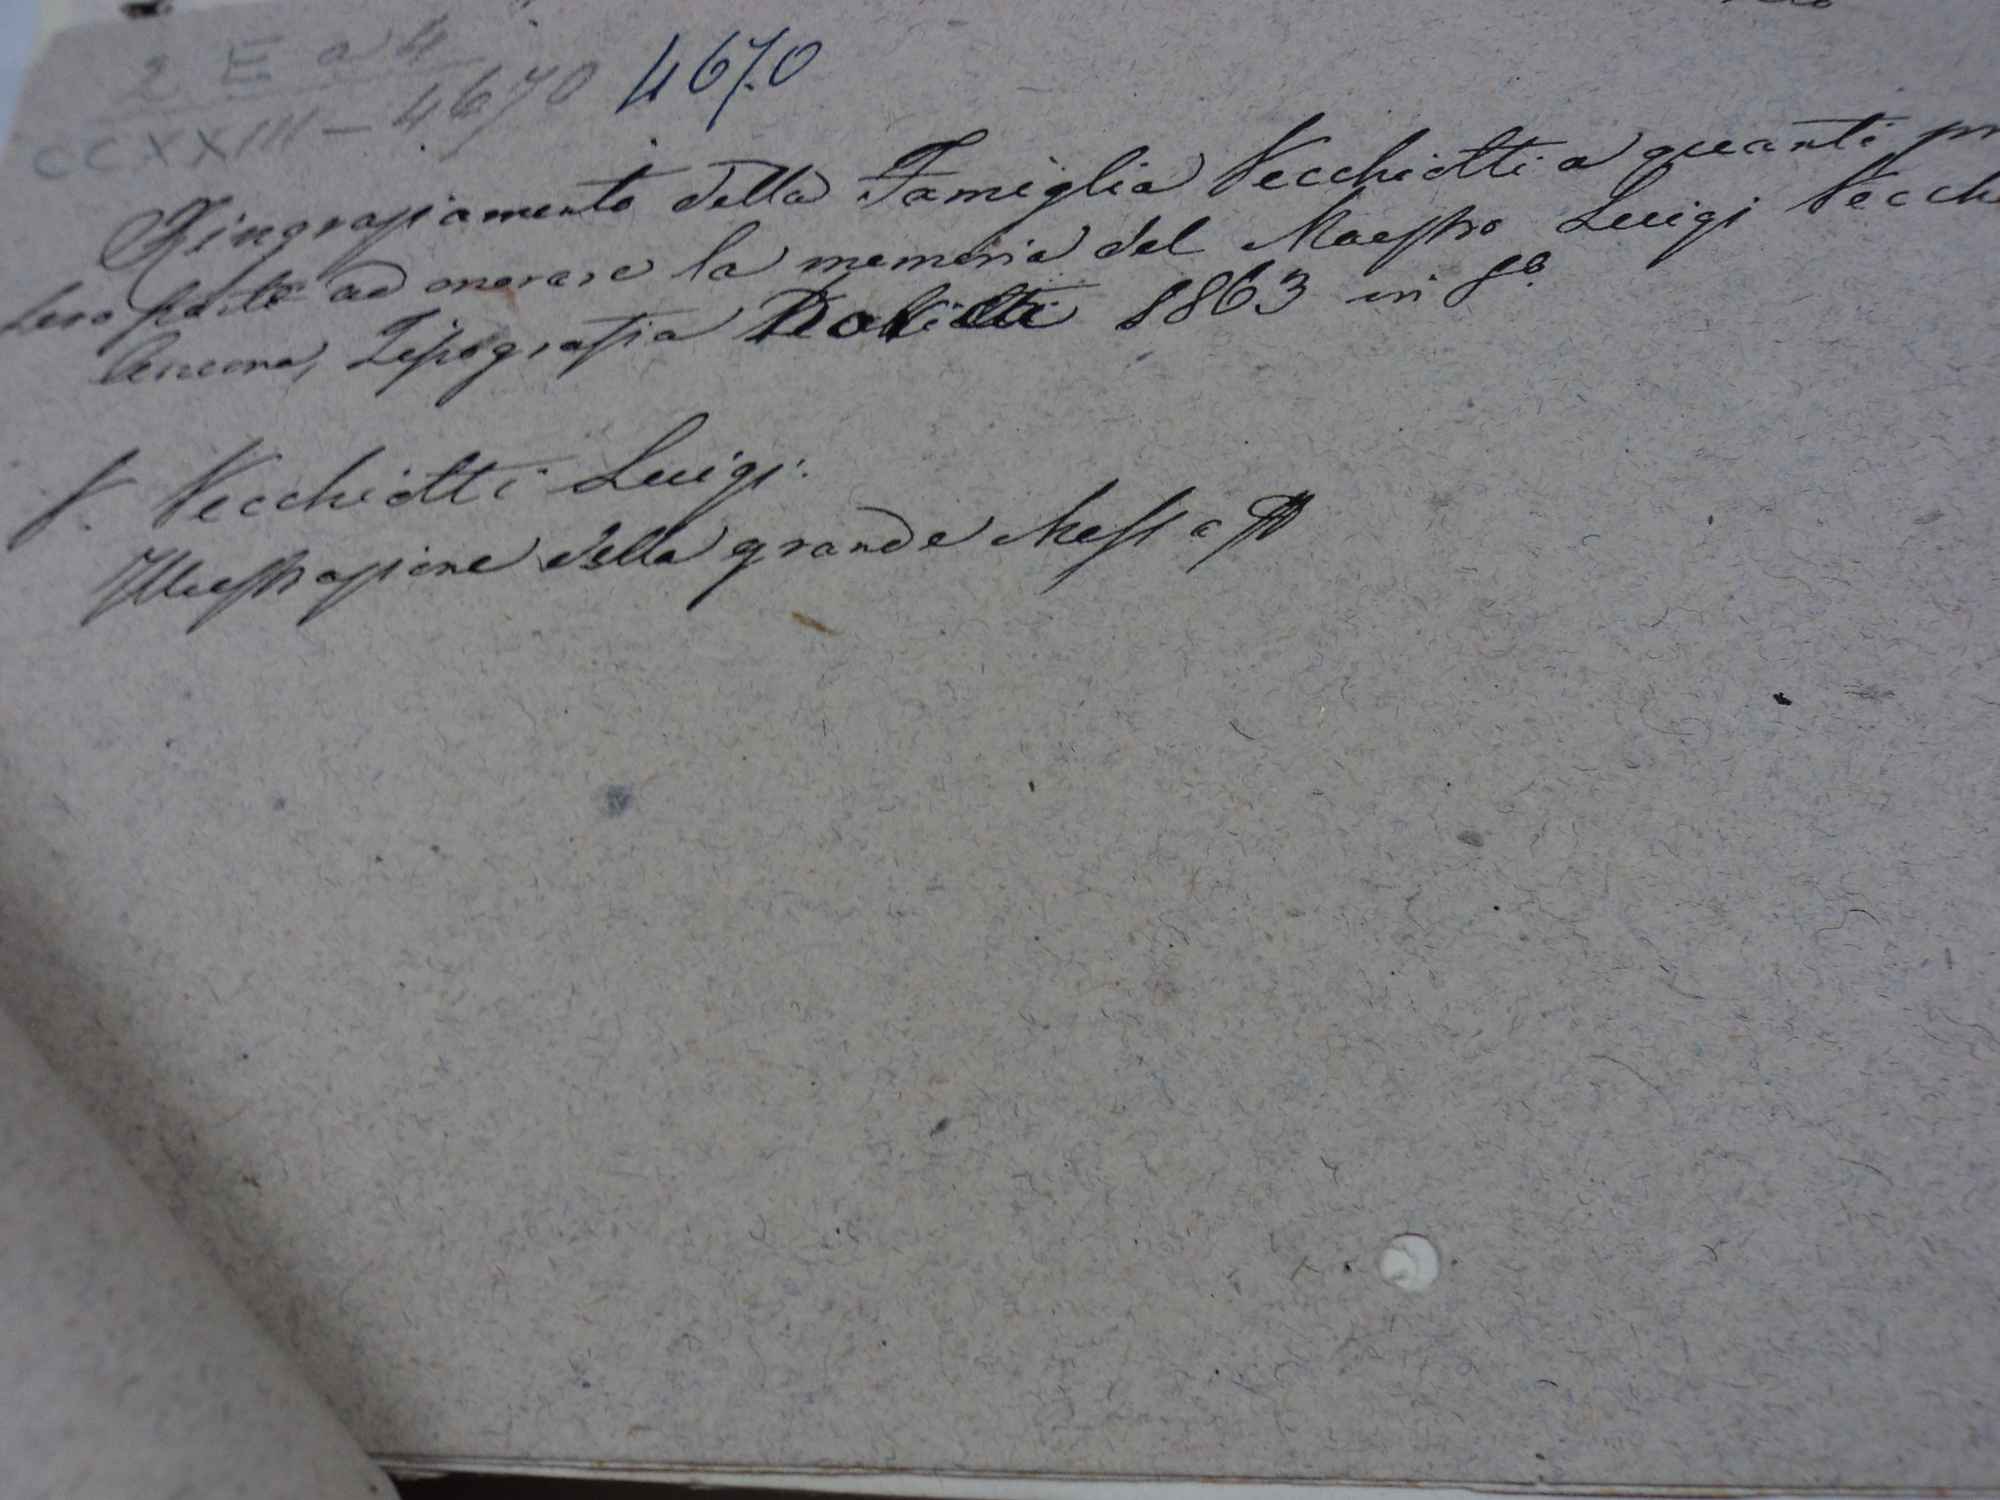 2 E a 4
CCXXIII – 4670 4670
Ringraziamento della Famiglia Vecchiotti a quanti pr
sero parte ad onorare la memoria del Maestro Luigi Vecch
Ancona, Tipografia 1863 in 8º.
V. Vecchiotti Luigi.
Illustrazione della grande Messa